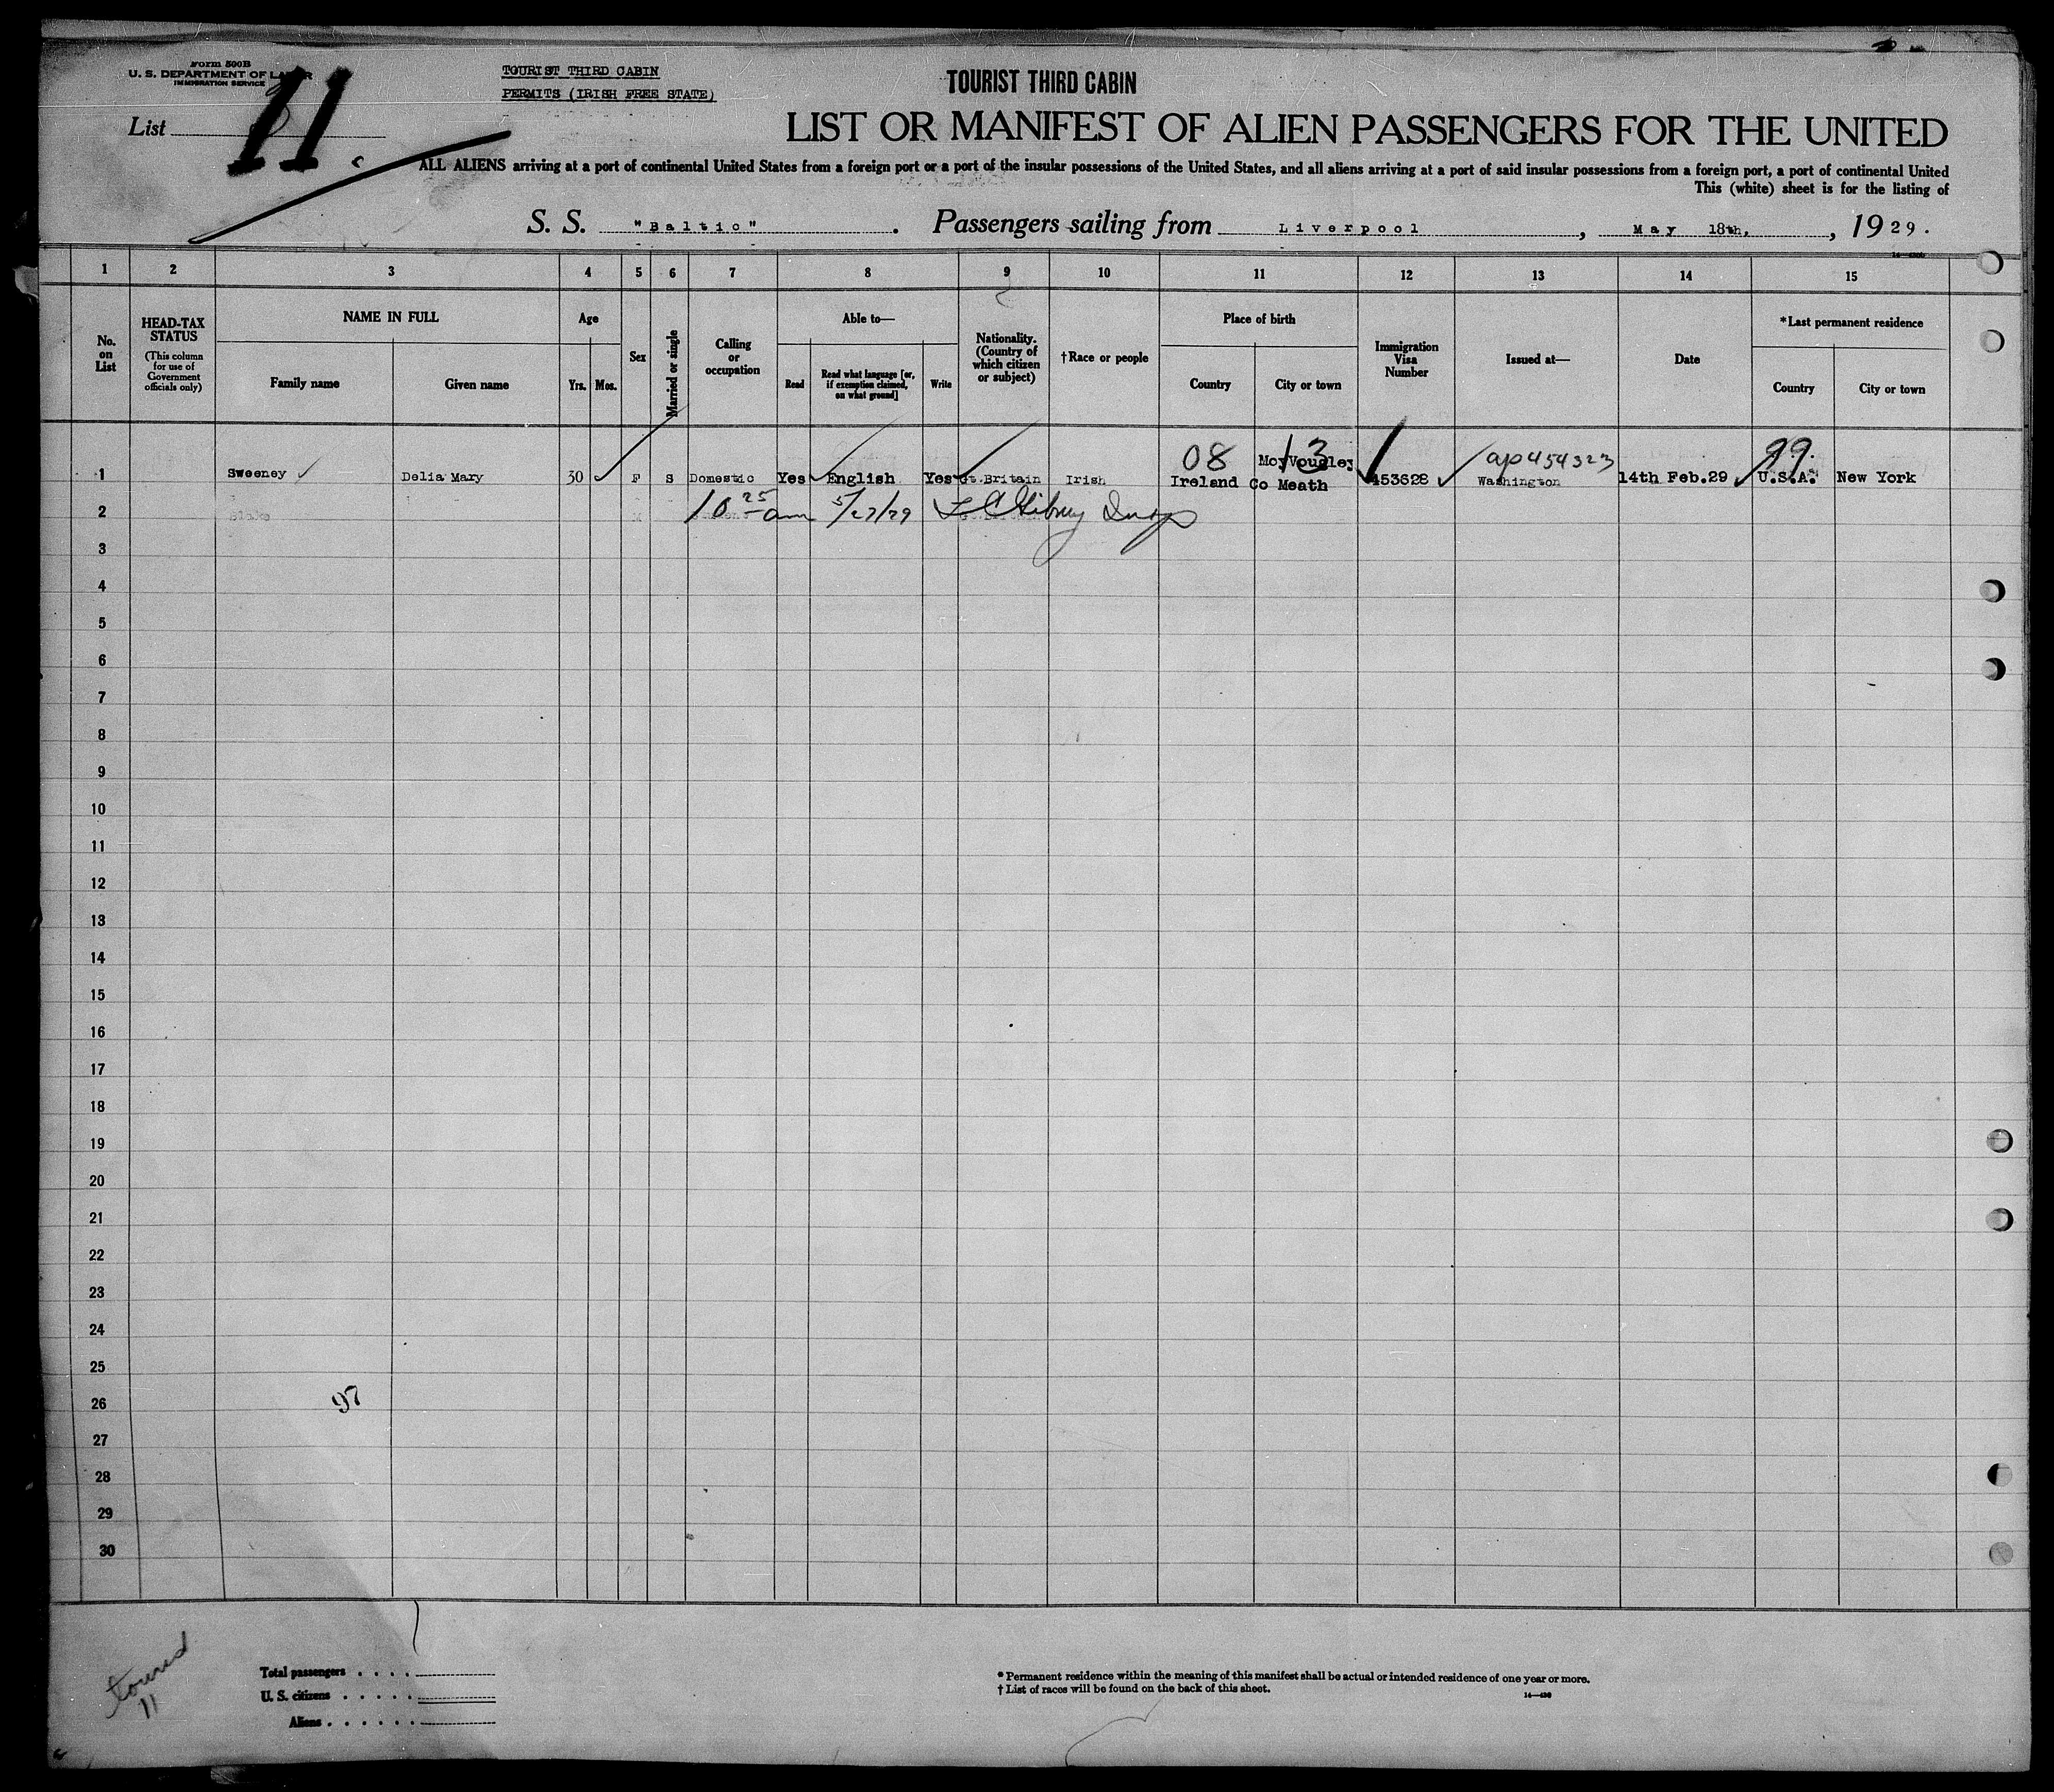 Form 500B
U. S. DEPARTMENT OF LABOR
IMMIGRATION SERVICE
List
11
TOURIST THIRD CABIN
PERMITS (IRISH FREE STATE)
TOURIST THIRD CABIN
LIST OR MANIFEST OF ALIEN PASSENGERS FOR THE UNITED
ALL ALIENS arriving at a port of continental United States from a foreign port or a port of the insular possessions of the United States, and all aliens arriving at a port of said insular possessions from a foreign port, a port of continental United
This (white) sheet is for the listing of
S. S. "Baltic". Passengers sailing from Liverpool, May 18th, , 1929.
1 2 3 4 5 6 7 8 9 10 11 12 13 14 15
No. on List
HEAD-TAX STATUS
(This column for use of Government officials only)
NAME IN FULL
Family name
Given name
Age
Yrs. Mos.
Sex
Married or single
Calling or occupation
Able to—
Read
Read what language [or, if exemption claimed, on what ground]
Write
Nationality. (Country of which citizen or subject)
†Race or people
Place of birth
Country
City or town
Immigration Visa Number
Issued at—
Date
*Last permanent residence
Country
City or town
08 13 ap454323 99.
1 Sweeney Delia Mary 30 F S Domestic Yes English Yes Gt.Britain Irish Ireland Co Meath 453628 Washington 14th Feb.29 U.S.A. New York
2 10 25 am 5/27/29
3
4
5
6
7
8
9
10
11
12
13
14
15
16
17
18
19
20
21
22
23
24
25
26 97
27
28
29
30
11
Total passengers . . . .
U. S. citizens . . . . .
Aliens . . . . . .
* Permanent residence within the meaning of this manifest shall be actual or intended residence of one year or more.
† List of races will be found on the back of this sheet.
14—430